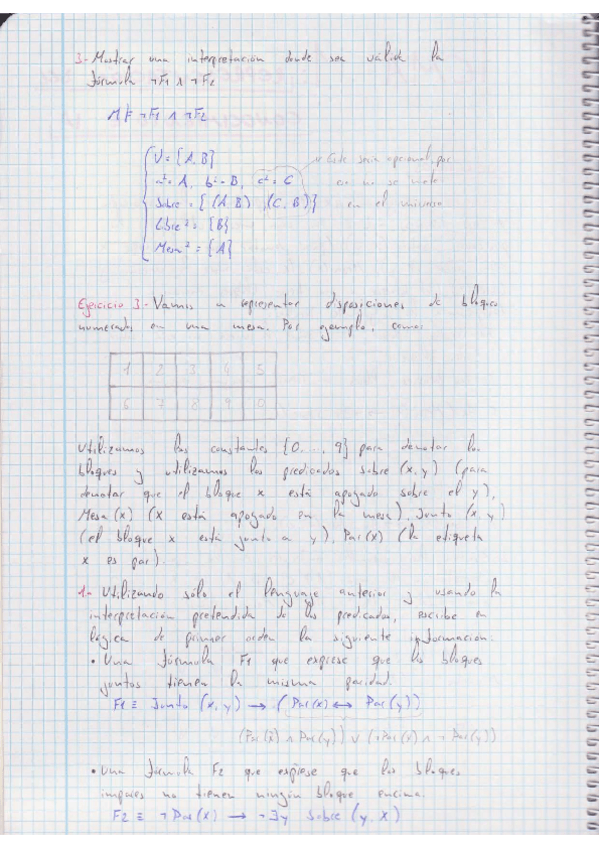 3.- Mostrar una interpretación donde sea válida la
fórmula ¬F1 ∧ ¬F2
M ⊧ ¬F1 ∧ ¬F2
U = {A, B}
a^I = A, b^I = B, c^I = C
Sobre = { (A, B), (C, B)}
Libre^I = {B}
Mesa^I = {A}
Este sería opcional, por
no se mete
en el universo
Ejercicio 3.- Vamos a representar disposiciones de bloques
numerados en una mesa. Por ejemplo, como:
1 2 3 4 5
6 7 8 9 0
Utilizamos las constantes {0, ..., 9} para denotar los
bloques y utilizamos los predicados sobre (x, y) (para
denotar que el bloque x está apoyado sobre el y),
Mesa (x) (x está apoyado en la mesa), Junto (x, y)
(el bloque x está junto a y), Par (x) (la etiqueta
x es par).
1.- Utilizando sólo el lenguaje anterior y usando la
interpretación pretendida de los predicados, escribe en
lógica de primer orden la siguiente información:
• Una fórmula F1 que exprese que los bloques
juntos tienen la misma paridad.
F1 ≡ Junto (x, y) → (Par(x) ↔ Par(y))
(Par(x) ∧ Par(y)) ∨ (¬Par(x) ∧ ¬Par(y))
• Una fórmula F2 que exprese que los bloques
impares no tienen ningún bloque encima.
F2 ≡ ¬Par(x) → ¬∃y Sobre (y, x)